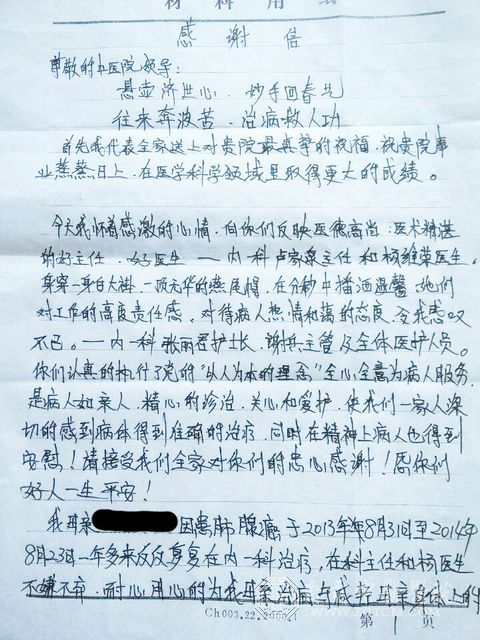 材料用纸
感谢信
尊敬的中医院领导：
悬壶济世心，妙手回春光
往来奔波苦，治病救人功
首先我代表全家送上对贵院最真挚的祝福，祝贵院事
业蒸蒸日上，在医学科学领域里取得更大的成绩。
今天我怀着感激的心情，向你们反映医德高尚，医术精湛
的好主任，好医生——内一科卢家泉主任和杨维荣医生。
身穿一身白大褂，一顶无华的燕尾帽，在分秒中播洒温馨，她们
对工作的高度责任感，对待病人热情和蔼的态度，令我感叹
不已。——内一科张丽君护士长，谢兵主管及全体医护人员。
你们认真的执行了党的“以人为本的理念”全心全意为病人服务，
是病人如亲人，精心的诊治，关心和爱护，使我们一家人深
切的感到病体得到准确的治疗，同时在精神上病人也得到
安慰！请接受我们全家对你们的忠心感谢！愿你们
好人一生平安！
我母亲 因患肺腺癌于2013年8月31日至2014年
8月23日一年多来反反复复在内一科治疗，在科主任和杨医生
不嫌不弃，耐心用心的为我母亲治病与感控母亲身体上的
Ch003.22.2000.1
第1页